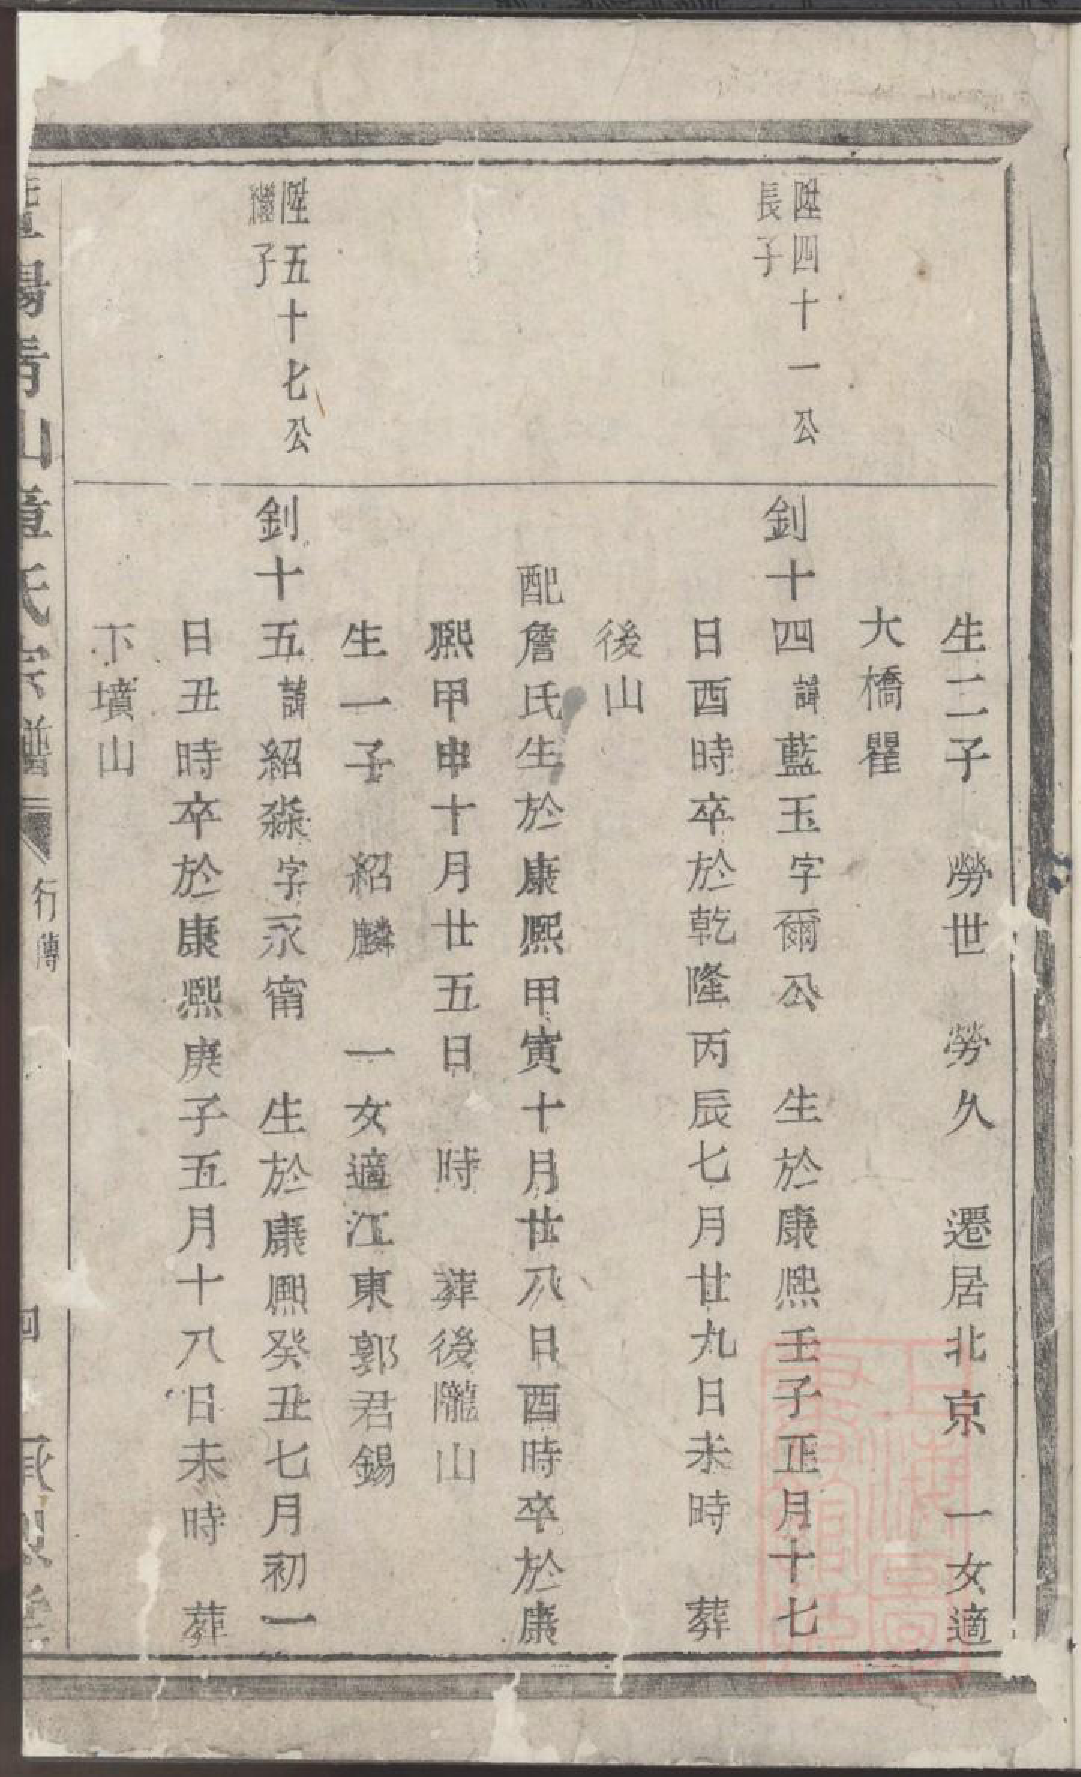 生二子　勞世　勞久　遷居北京　一女適
大橋瞿
陞四十一公
長子
釗十四諱藍玉字爾公　生於康熙壬子正月十七
日酉時卒於乾隆丙辰七月廿九日未時　葬
後山
配詹氏生於康熙甲寅十月廿八日酉時卒於康
熙甲申十月廿五日　時　葬後隴山
生一子　紹麟　一女適江東郭君錫
陞五十七公
繼子
釗十五諱紹淼字永甯　生於康熙癸丑七月初一
日丑時卒於康熙庚子五月十八日未時　葬
下墳山
陽青山章氏宗譜　行傳　四